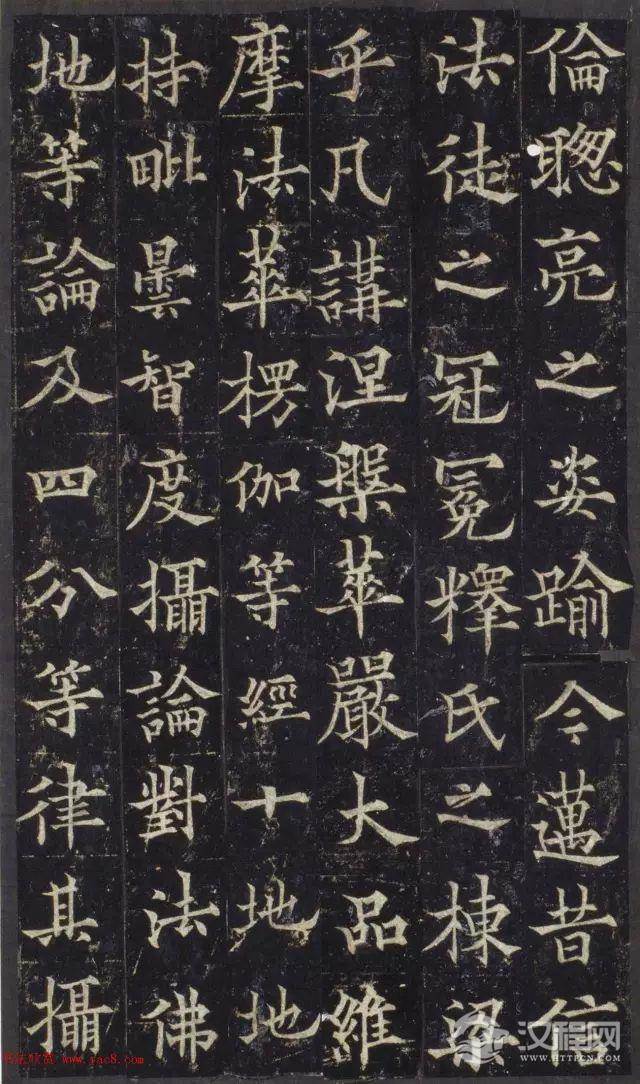 倫聦亮之姿踰今邁昔信
法徒之冠冕釋氏之棟梁
乎凡講涅槃華嚴大品維
摩法華楞伽等經十地地
持毗曇智度攝論對法佛
地等論及四分等律其攝
汉程网
WWW.HTTPCN.COM
书法欣赏 www.yac8.com